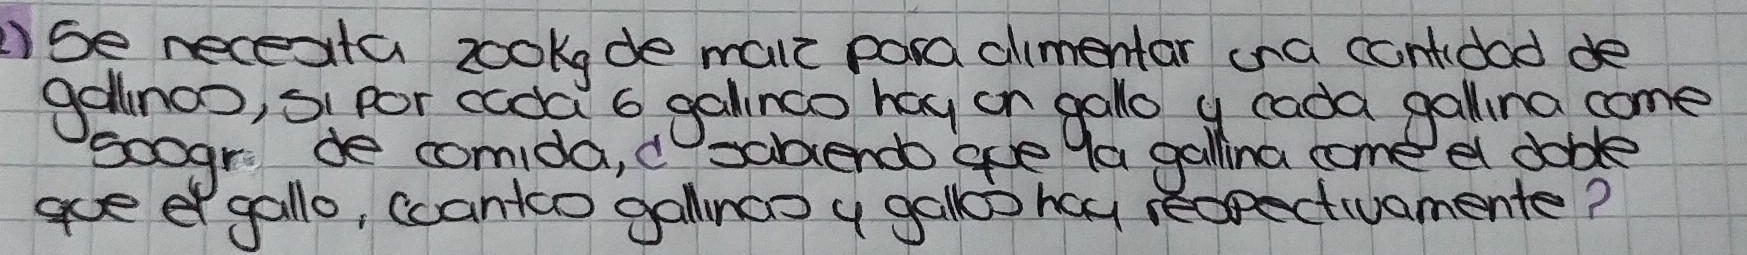 2) Se necesita 200kg de maiz para alimentar una cantidad de
gallinas, si por cada 6 gallinas hay un gallo y cada gallina come
500gr de comida, sabiendo que la gallina come el doble
que el gallo, ¿cuantas gallinas y gallos hay respectivamente?